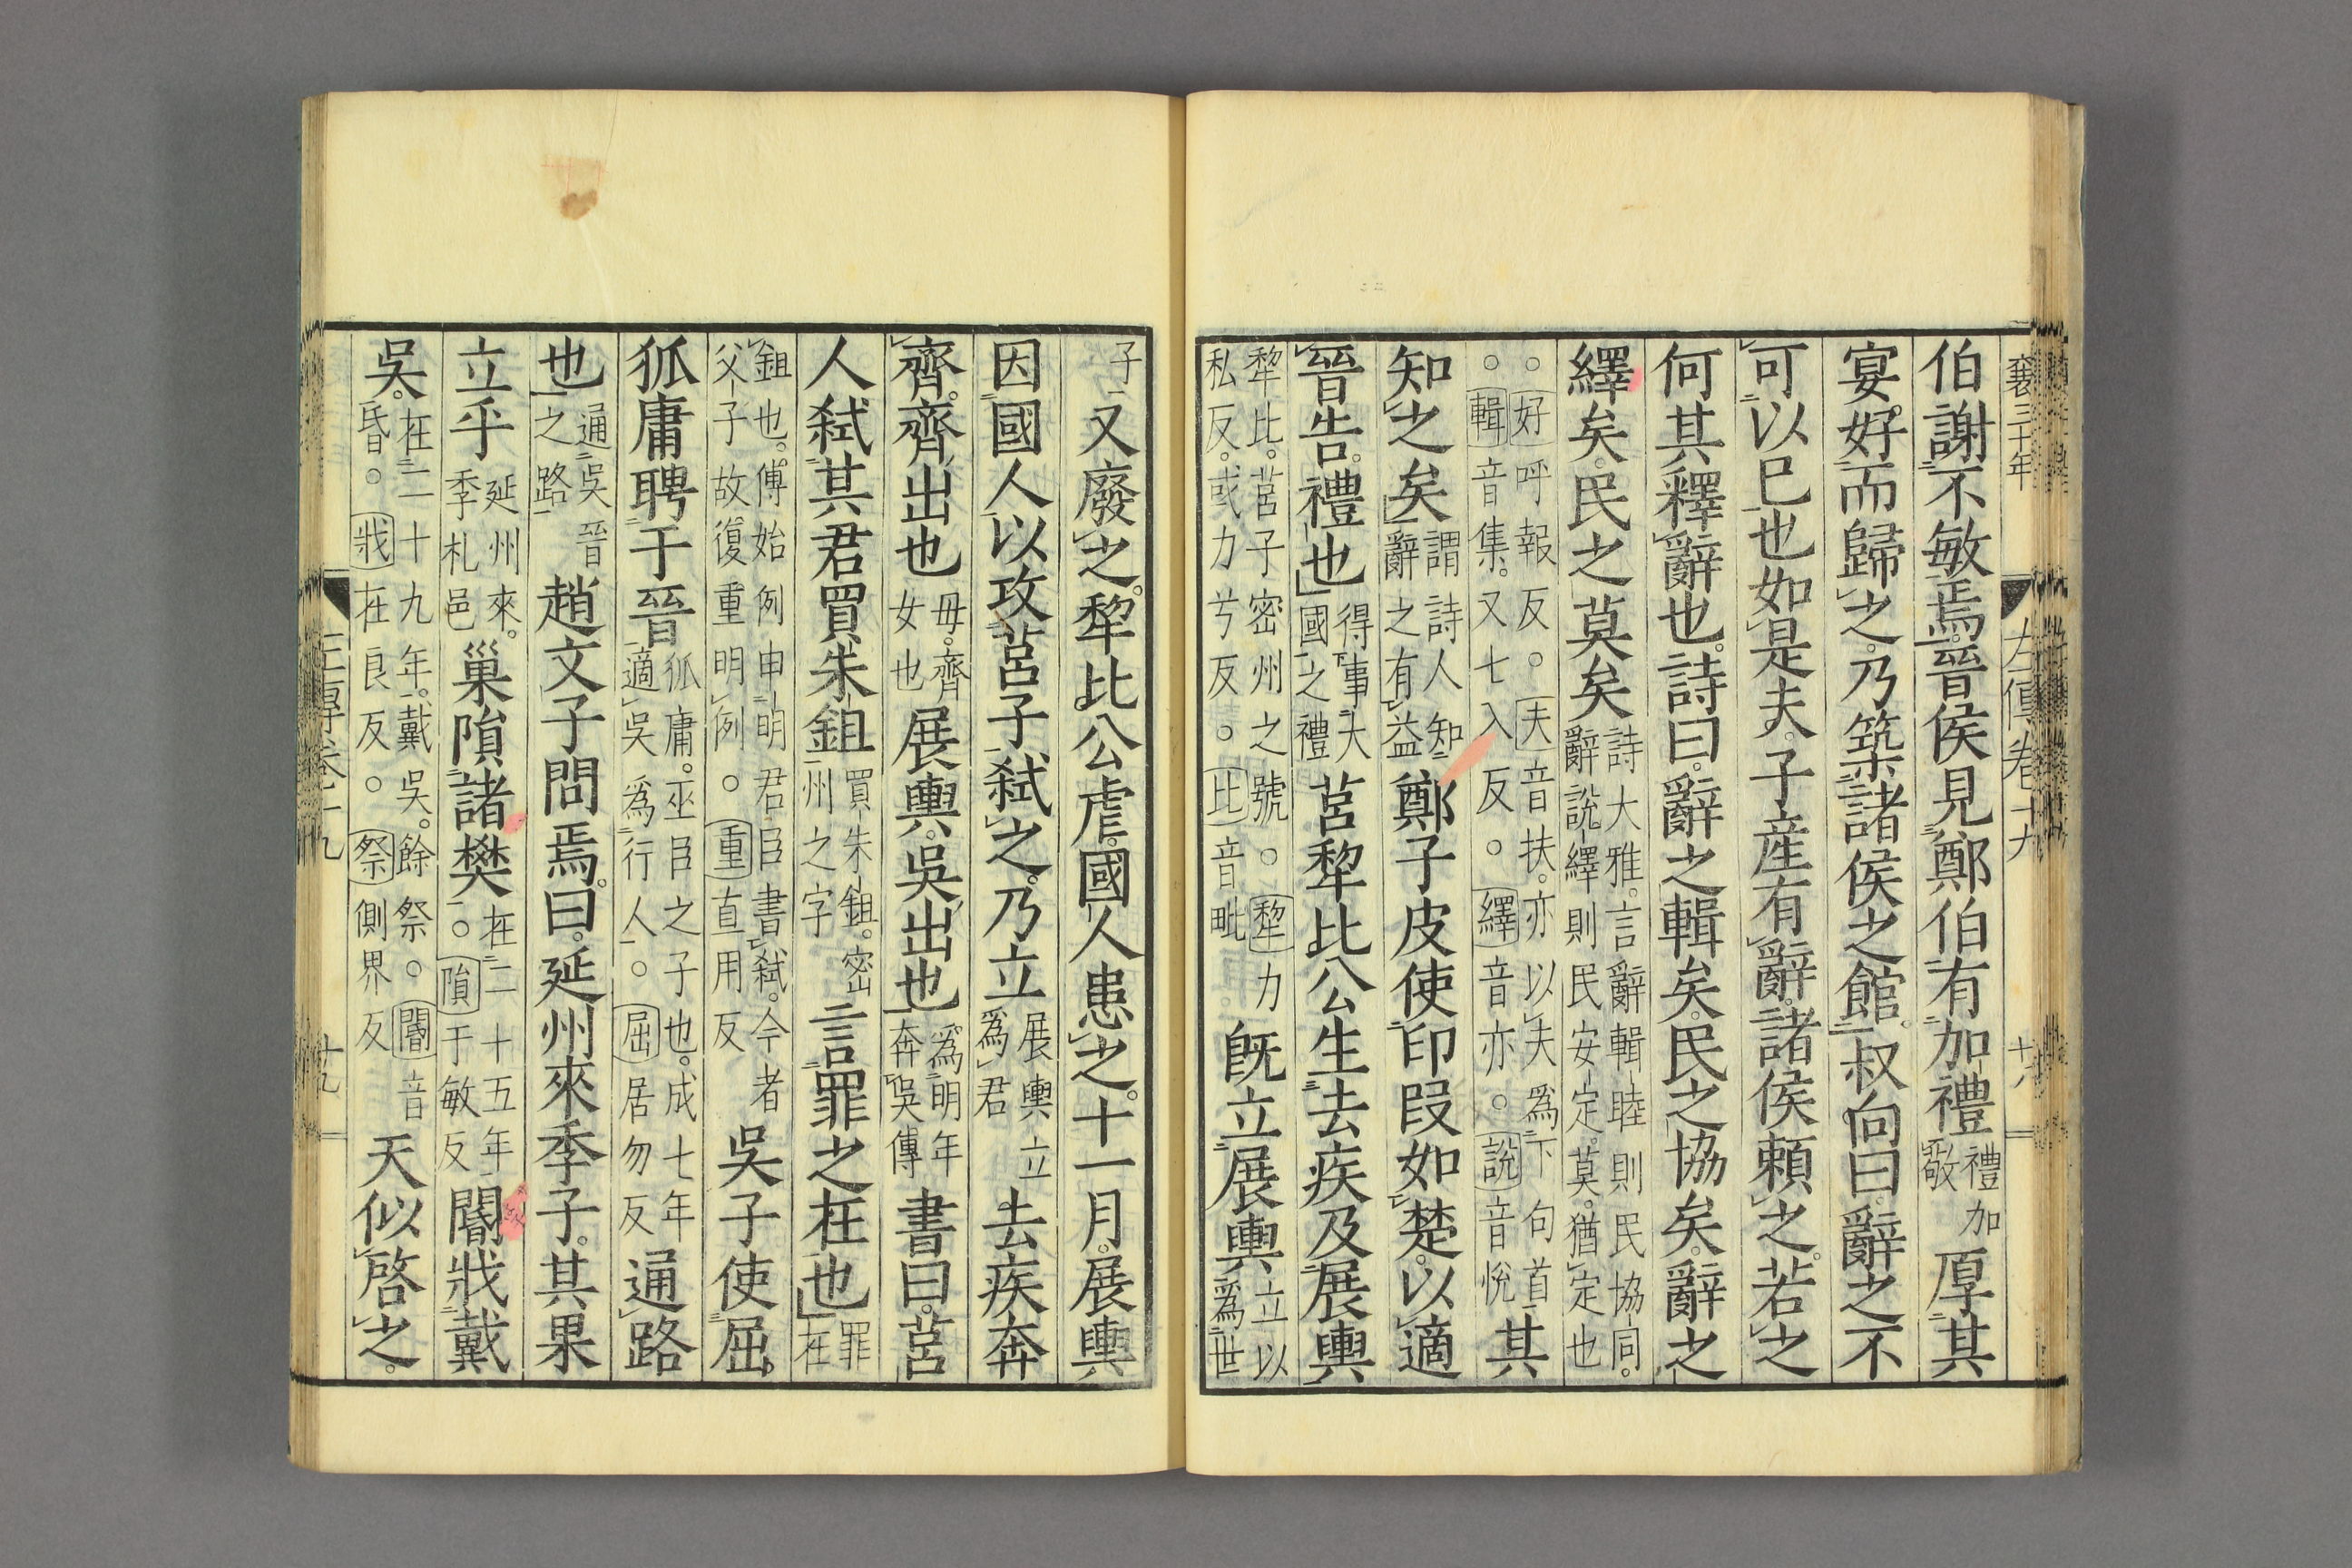 襄三十年 左傳卷十九 十八
伯謝不敏焉。晉侯見鄭伯有加禮禮加敬厚其
宴好而歸之。乃築諸侯之館。叔向曰。辭之不
可以已也如是夫。子産有辭。諸侯賴之。若之
何其釋辭也。詩曰。辭之輯矣。民之協矣。辭之
繹矣。民之莫矣詩大雅。言辭輯睦則民協同。辭說繹則民安定。莫。猶定也
○好呼報反。○夫音扶。亦以夫爲下句首○輯音集。又七入反。○繹音亦。○說音悅其
知之矣謂詩人知辭之有益鄭子皮使印段如楚。以適
晉告。禮也得事大國之禮莒犂比公生去疾及展輿
犂比。莒子密州之號。○犂力私反。或力兮反。○比音毗旣立展輿立以爲世
子又廢之。犂比公虐。國人患之。十一月。展輿
因國人以攻莒子。弒之。乃立展輿立爲君去疾奔
齊。齊出也母。齊女也展輿。吳出也爲明年奔吳傳書曰。莒
人弒其君買朱鉏買朱鉏。密州之字言罪之在也罪在
鉏也。傅始例申明君臣書弒。今者父子故復重明例。○重直用反吳子使屈
狐庸聘于晉狐庸。巫臣之子也。成七年適吳爲行人。○屈居勿反通路
也通吳晉之路趙文子問焉。曰。延州來季子。其果
立乎延州來。季札邑巢隕諸樊在二十五年○隕于敏反閽戕戴
吳。在二十九年。戴吳。餘祭。○閽音昏。○戕在良反。○祭側界反天似啓之。
十九